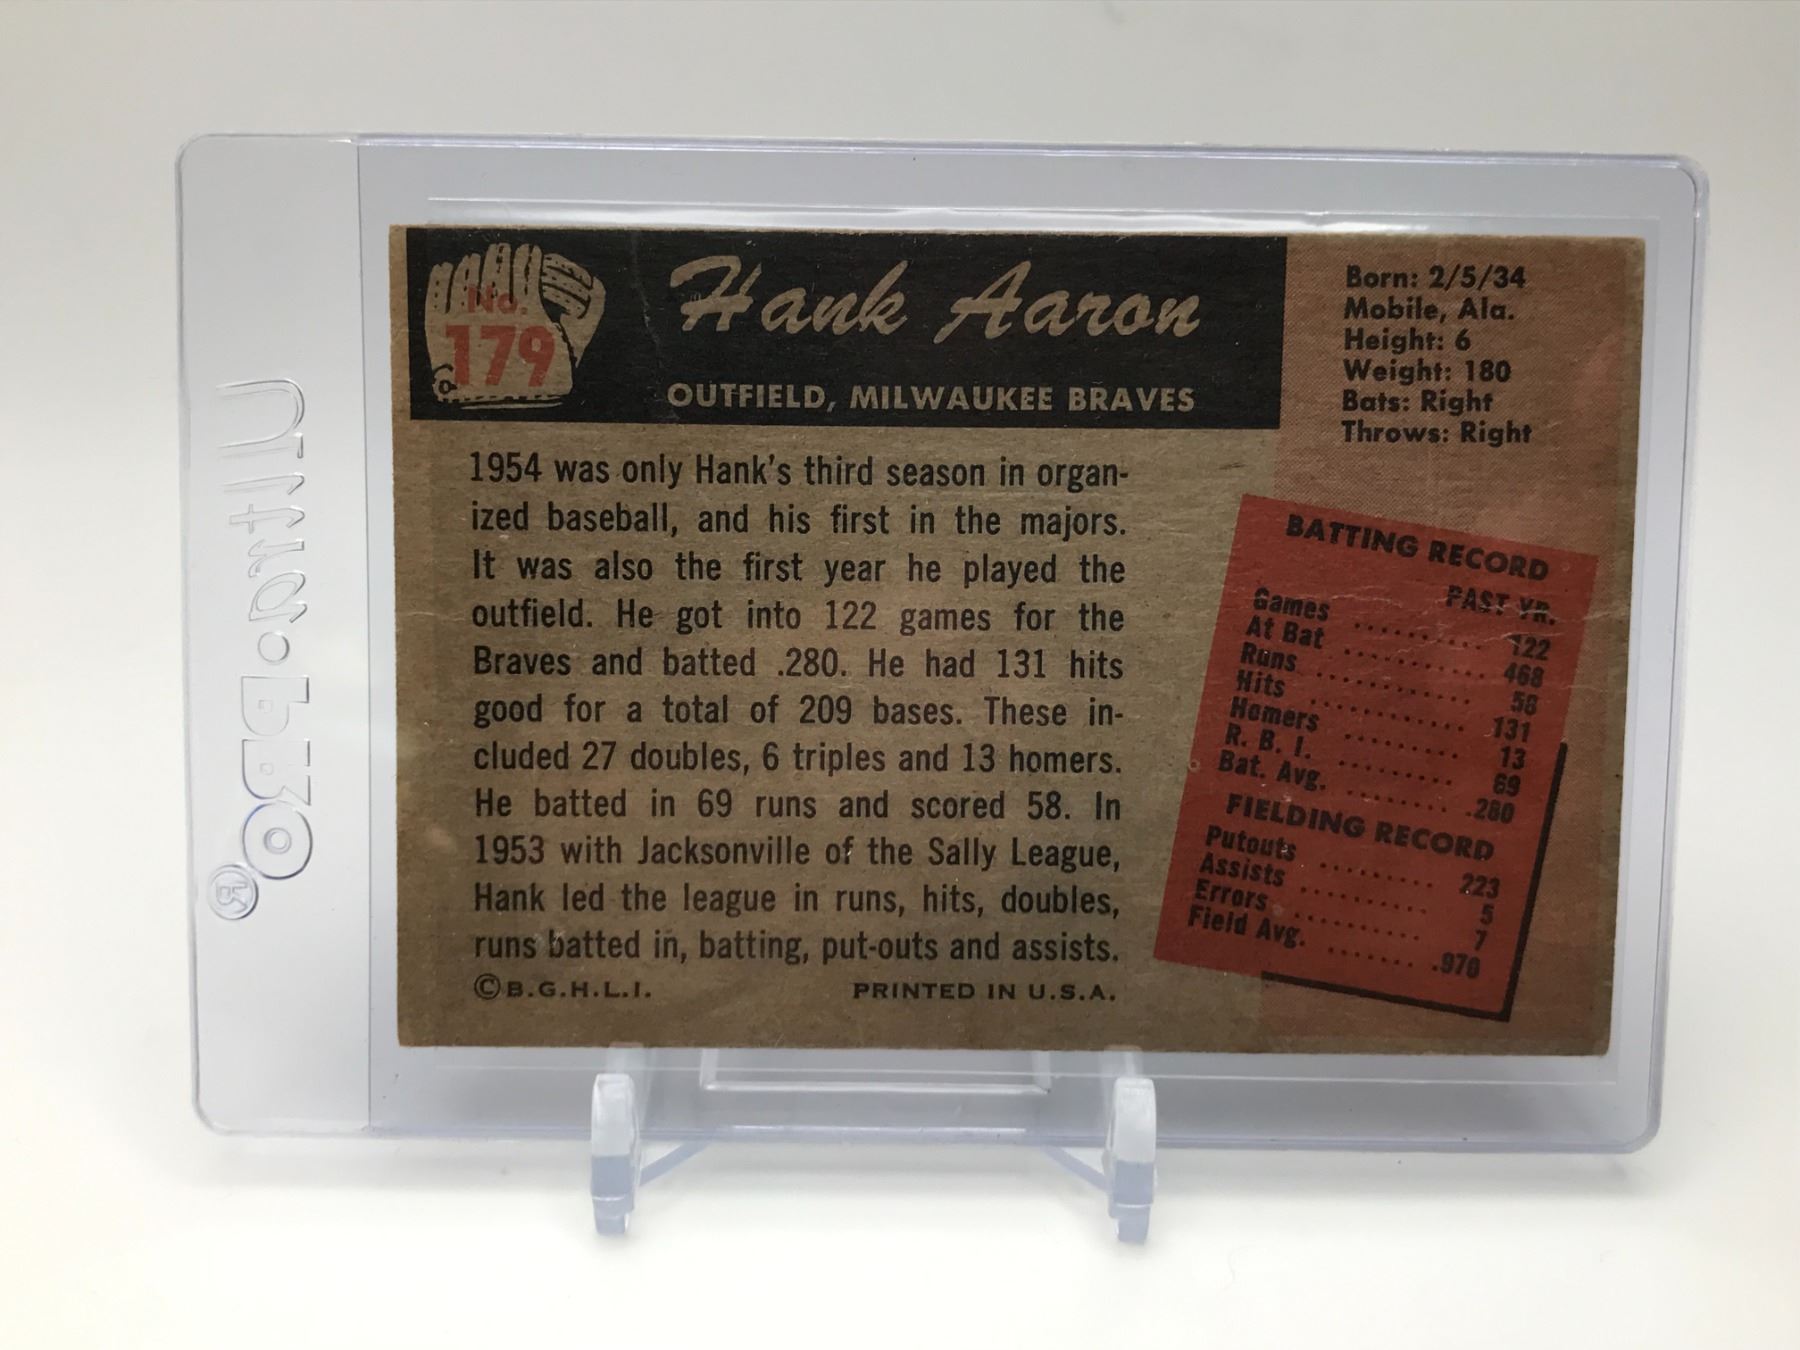 No.
179
Hank Aaron
OUTFIELD, MILWAUKEE BRAVES
Born: 2/5/34
Mobile, Ala.
Height: 6
Weight: 180
Bats: Right
Throws: Right
1954 was only Hank's third season in organ-
ized baseball, and his first in the majors.
It was also the first year he played the
outfield. He got into 122 games for the
Braves and batted .280. He had 131 hits
good for a total of 209 bases. These in-
cluded 27 doubles, 6 triples and 13 homers.
He batted in 69 runs and scored 58. In
1953 with Jacksonville of the Sally League,
Hank led the league in runs, hits, doubles,
runs batted in, batting, put-outs and assists.
© B.G.H.L.I. PRINTED IN U.S.A.
BATTING RECORD
PAST YR.
Games .......... 122
At Bat .......... 468
Runs .......... 58
Hits .......... 131
Homers .......... 13
R. B. I. .......... 69
Bat. Avg. .......... .280
FIELDING RECORD
Putouts .......... 223
Assists .......... 5
Errors .......... 7
Field Avg. .......... .970
Ultra•PRO®